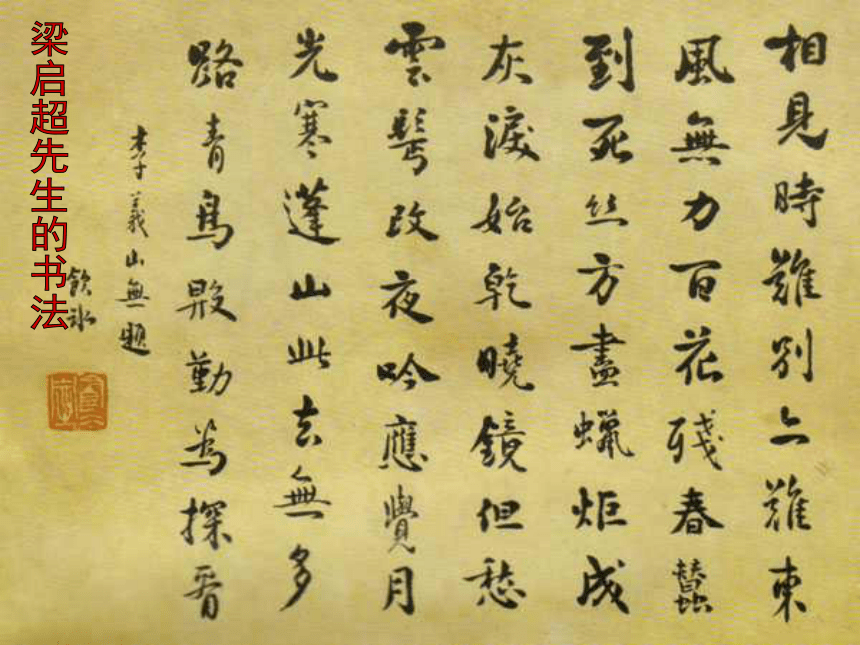 相見時難別亦難東
風無力百花殘春蠶
到死丝方盡蠟炬成
灰淚始乾曉鏡但愁
雲鬂改夜吟應覺月
光寒蓬山此去無多
路青鳥殷勤為探看
李義山無題
飲冰
梁启超先生的书法